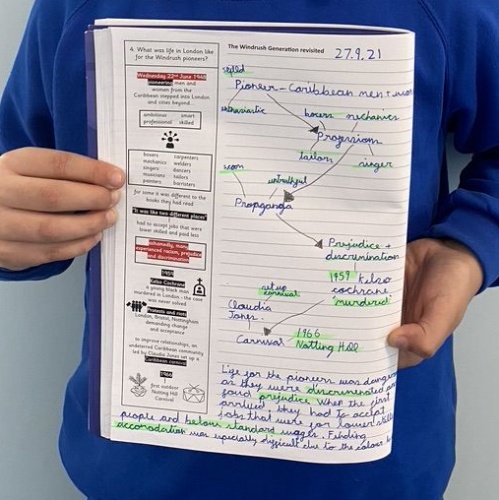 4. What was life in London like
for the Windrush pioneers?
Wednesday 22nd June 1948
pioneering men and
women from the
Caribbean stepped into London
and cities beyond
ambitious smart
professional skilled
boxers carpenters
mechanics welders
singers dancers
musicians tailors
painters barristers
for some it was different to the
books they had read
"It was like two different places"
had to accept jobs that were
lower skilled and paid less
Shamefully, many
experienced racism, prejudice
and discrimination
1959
Kelso Cochrane
a young black man
murdered in London - the case
was never solved
Protests and riots
London, Bristol, Nottingham
demanding change
and acceptance
to improve relationships, an
undeterred Caribbean community
led by Claudia Jones set up a
Caribbean carnival
1966
first outdoor
Notting Hill
Carnival
The Windrush Generation revisited
27.9.21
skilled
Pioneer - Caribbean men + women
enthusiastic
boxers mechanics
Progression
tailors singer
untruthful
Propganga
Prejudice +
discrimination
1959 Kelso
cochrane
'murdered'
set up
carnival
Claudia
Jones
1966
Carnival Notting Hill
Life for the pioneers was dangerous
as they were discrimenated and
faced prejudice. When the first
arrived, they had to accept
jobs that were for lower skilled
people and below standard wages. Finding
accomodation was especially difficult due to the colour b